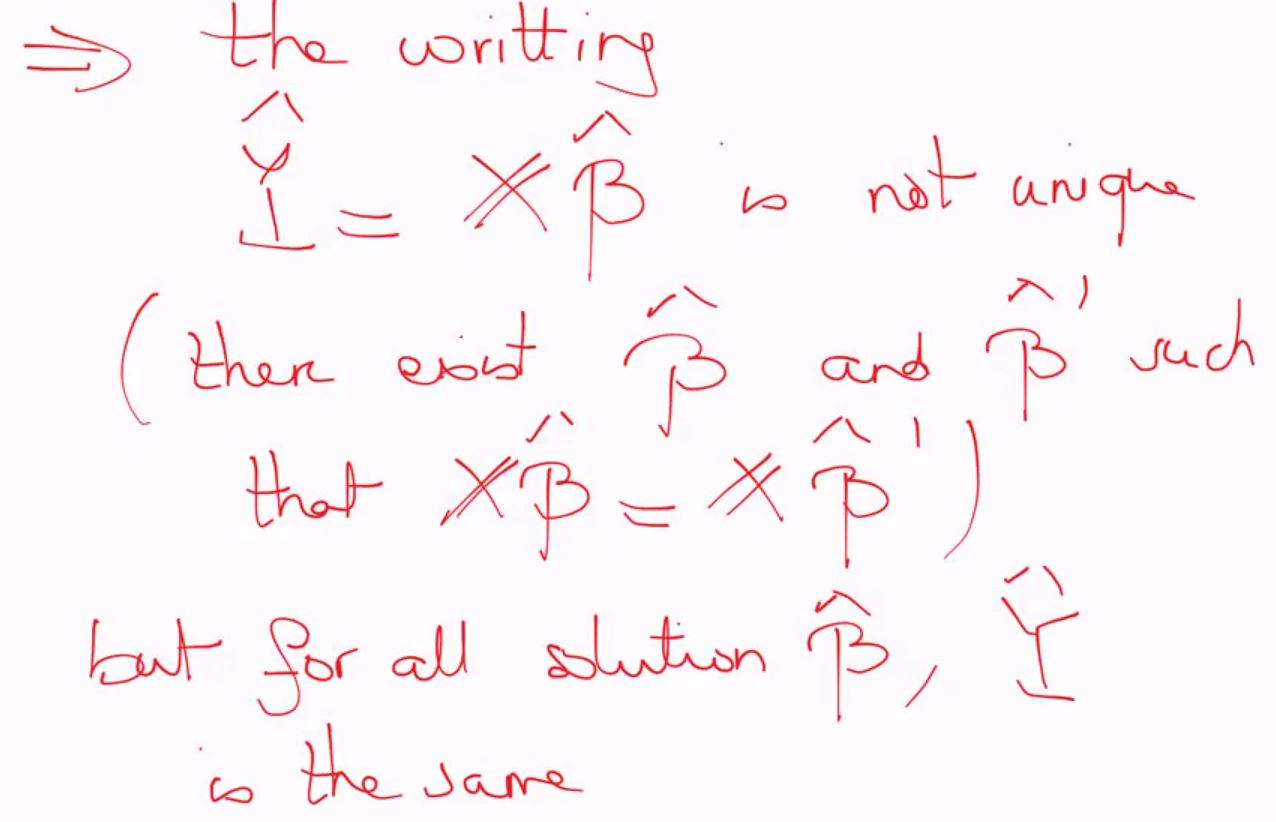 ⇒ the writting
Ŷ = X β̂ is not unique
(there exist β̂ and β̂' such
that X β̂ = X β̂')
but for all solution β̂, Ŷ
is the same